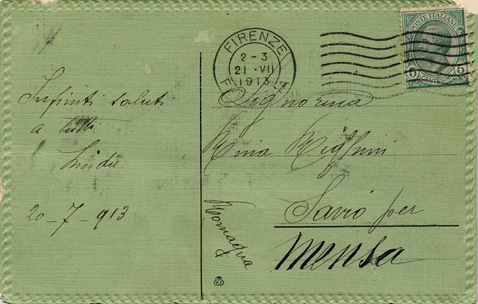 Infiniti saluti
a tutti
20-7-913
FIRENZE
2-3
21·VII
1913
POSTE ITALIANE
5 5
Signorina
Savio per
Mensa
Romagna